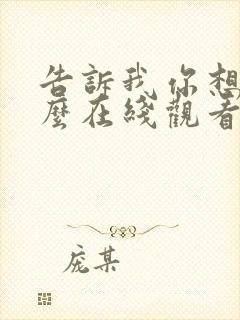 告訴我你想
麼在綫觀看
庞某